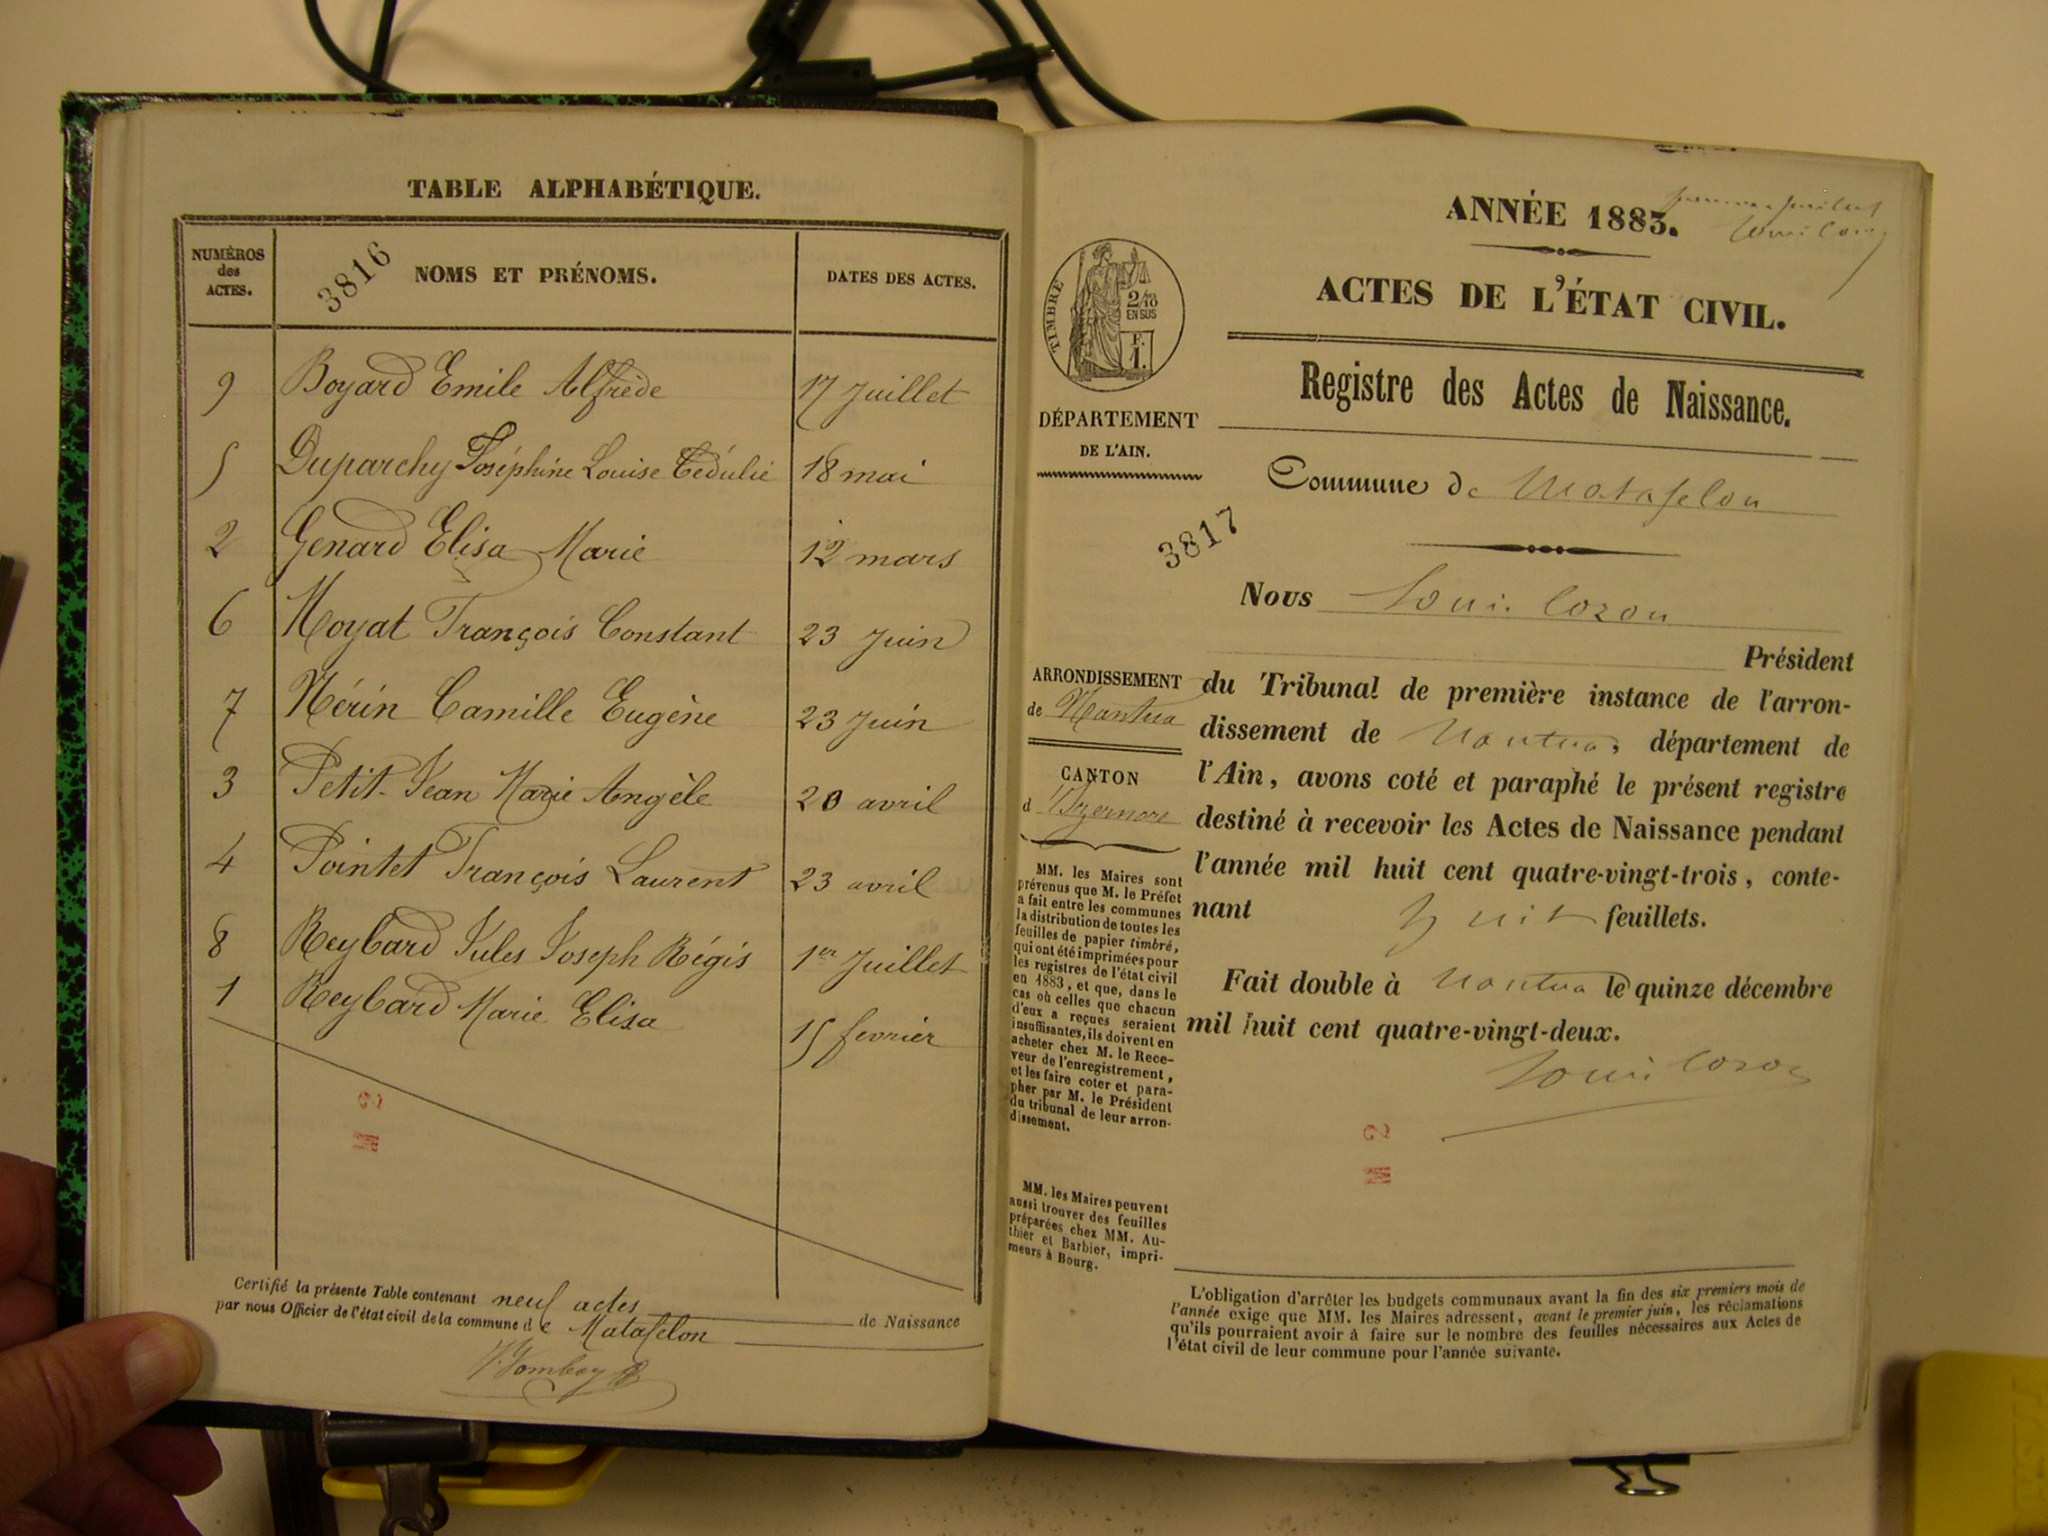 TABLE ALPHABÉTIQUE.
NUMÉROS
des
ACTES.
3816
NOMS ET PRÉNOMS.
DATES DES ACTES.
9 Boyard Emile Alfrède 17 juillet
5 Duparchy Joséphine Louise Cédulie 18 mai
2 Genard Elisa Marie 12 mars
6 Moyat François Constant 23 juin
7 Nérin Camille Eugène 23 juin
3 Petit-Jean Marie Angèle 20 avril
4 Pointet François Laurent 23 avril
8 Reybard Jules Joseph Régis 1er juillet
1 Reybard Marie Elisa 15 fevrier
2 M
Certifié la présente Table contenant neuf actes de Naissance
par nous Officier de l'état civil de la commune de Matafelon
ANNÉE 1883.
ACTES DE L'ÉTAT CIVIL.
Registre des Actes de Naissance.
TIMBRE
2/10
EN SUS
F.
1.
DÉPARTEMENT
DE L'AIN.
Commune de Matafelon
3817
Nous Louis Cozon
Président
ARRONDISSEMENT
de Nantua
CANTON
d'Izernore
du Tribunal de première instance de l'arron-
dissement de Nantua, département de
l'Ain, avons coté et paraphé le présent registre
destiné à recevoir les Actes de Naissance pendant
l'année mil huit cent quatre-vingt-trois, conte-
nant huit feuillets.
Fait double à Nantua le quinze décembre
mil huit cent quatre-vingt-deux.
Louis Cozon
MM. les Maires sont
prévenus que M. le Préfet
a fait entre les communes
la distribution de toutes les
feuilles de papier timbré,
qui ont été imprimées pour
les registres de l'état civil
en 1883, et que, dans le
cas où celles que chacun
d'eux a reçues seraient
insuffisantes, ils doivent en
acheter chez M. le Rece-
veur de l'enregistrement,
et les faire coter et para-
pher par M. le Président
du tribunal de leur arron-
dissement.
2 M
MM. les Maires peuvent
aussi trouver des feuilles
préparées chez MM. Au-
thier et Barbier, impri-
meurs à Bourg.
L'obligation d'arrêter les budgets communaux avant la fin des six premiers mois de
l'année exige que MM. les Maires adressent, avant le premier juin, les réclamations
qu'ils pourraient avoir à faire sur le nombre des feuilles nécessaires aux Actes de
l'état civil de leur commune pour l'année suivante.